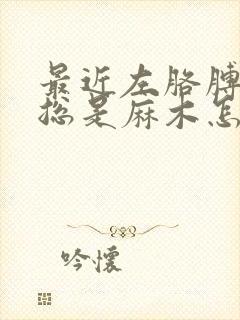 最近左胳膊
总是麻木怎
吟怀